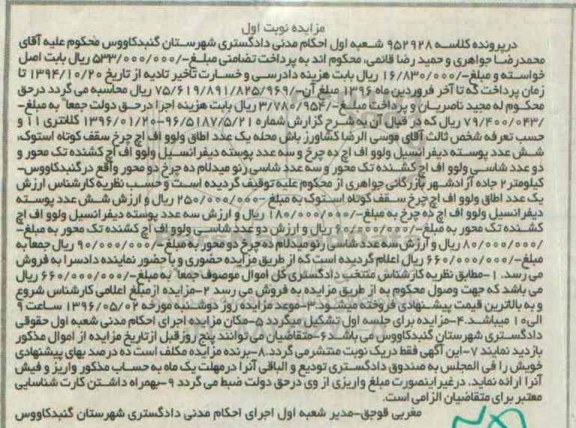 مزایده نوبت اول
درپرونده کلاسه ۹۵۲۹۲۸ شعبه اول احکام مدنی دادگستری شهرستان گنبدکاووس محکوم علیه آقای
محمدرضا جواهری و حمید رضا قائمی، محکوم اند به پرداخت تضامنی مبلغ-/۵۳۳/۰۰۰/۰۰۰ ریال بابت اصل
خواسته و مبلغ-/۱۶/۸۳۰/۰۰۰ ریال بابت هزینه دادرسی و خسارت تأخیر تادیه از تاریخ ۱۳۹۴/۱۰/۲۰ تا
زمان پرداخت که تا آخر فروردین ماه ۱۳۹۶ مبلغ آن-/۷۵/۶۱۹/۸۹۱/۸۲۵/۹۶۹ ریال محاسبه می گردد درحق
محکوم له مجید ناصریان و پرداخت مبلغ-/۳/۷۸۰/۹۵۴ ریال بابت هزینه اجرا درحق دولت جمعا" به مبلغ-
/۷۹/۴۰۰/۰۴۳ ریال که در قبال آن به شرح گزارش شماره ۹۶/۵۱۸۷/۵/۲۱-۱۳۹۶/۰۱/۲۰ کلانتری ۱۱ و
حسب تعرفه شخص ثالث آقای موسی الرضا کشاورز باش محله یک عدد اطاق ولوو اف اچ چرخ سقف کوتاه استوک،
شش عدد پوسته دیفرانسیل ولوو اف اچ ده چرخ و سه عدد پوسته دیفرانسیل ولوو اف اچ کشنده تک محور و
دو عدد شاسی ولوو اف اچ کشنده تک محور و سه عدد شاسی رنو میدلام ده چرخ دو محور واقع درگنبدکاووس-
کیلومتر ۲ جاده آزادشهر بازرگانی جواهری از محکوم علیه توقیف گردیده است و حسب نظریه کارشناس ارزش
یک عدد اطاق ولوو اف اچ چرخ سقف کوتاه استوک به مبلغ-/۲۵۰/۰۰۰/۰۰۰ ریال و ارزش شش عدد پوسته
دیفرانسیل ولوو اف اچ ده چرخ به مبلغ-/۱۸۰/۰۰۰/۰۰۰ ریال و ارزش سه عدد پوسته دیفرانسیل ولوو اف اچ
کشنده تک محور به مبلغ-/۶۰/۰۰۰/۰۰۰ ریال و ارزش دو عدد شاسی ولوو اف اچ کشنده تک محور به مبلغ-
/۸۰/۰۰۰/۰۰۰ ریال و ارزش سه عدد شاسی رنو میدلام ده چرخ دو محور به مبلغ-/۹۰/۰۰۰/۰۰۰ ریال جمعا به
مبلغ-/۶۶۰/۰۰۰/۰۰۰ ریال اعلام گردیده است که از طریق مزایده حضوری و با حضور نماینده دادسرا به فروش
می رسد. ۱-مطابق نظریه کارشناس منتخب دادگستری کل اموال موصوف جمعا" به مبلغ-/۶۶۰/۰۰۰/۰۰۰ ریال
می باشد که جهت وصول محکوم به از طریق مزایده به فروش می رسد ۲-مزایده ازمبلغ اعلامی کارشناس شروع
و به بالاترین قیمت پیشنهادی فروخته میشود.۳-موعد مزایده روز دوشنبه مورخه ۱۳۹۶/۰۵/۰۲ ساعت ۹
الی۱۰ میباشد.۴-مزایده برای جلسه اول تشکیل میگردد ۵-مکان مزایده اجرای احکام مدنی شعبه اول حقوقی
دادگستری شهرستان گنبدکاووس می باشد ۶-متقاضیان می توانند پنج روز قبل از تاریخ مزایده از اموال مذکور
بازدید نمایند ۷-این آگهی فقط دریک نوبت منتشر می گردد.۸-برنده مزایده مکلف است ده درصد بهای پیشنهادی
خویش را فی المجلس به صندوق دادگستری تودیع و الباقی آنرا درمهلت یک ماه به حساب مذکور واریز و فیش
آنرا ارائه نماید. درغیر اینصورت مبلغ واریزی از وی درحق دولت ضبط می گردد ۹-بهمراه داشتن کارت شناسایی
معتبر برای متقاضیان الزامی است.
مغربی قوجق-مدیر شعبه اول اجرای احکام مدنی دادگستری شهرستان گنبدکاووس